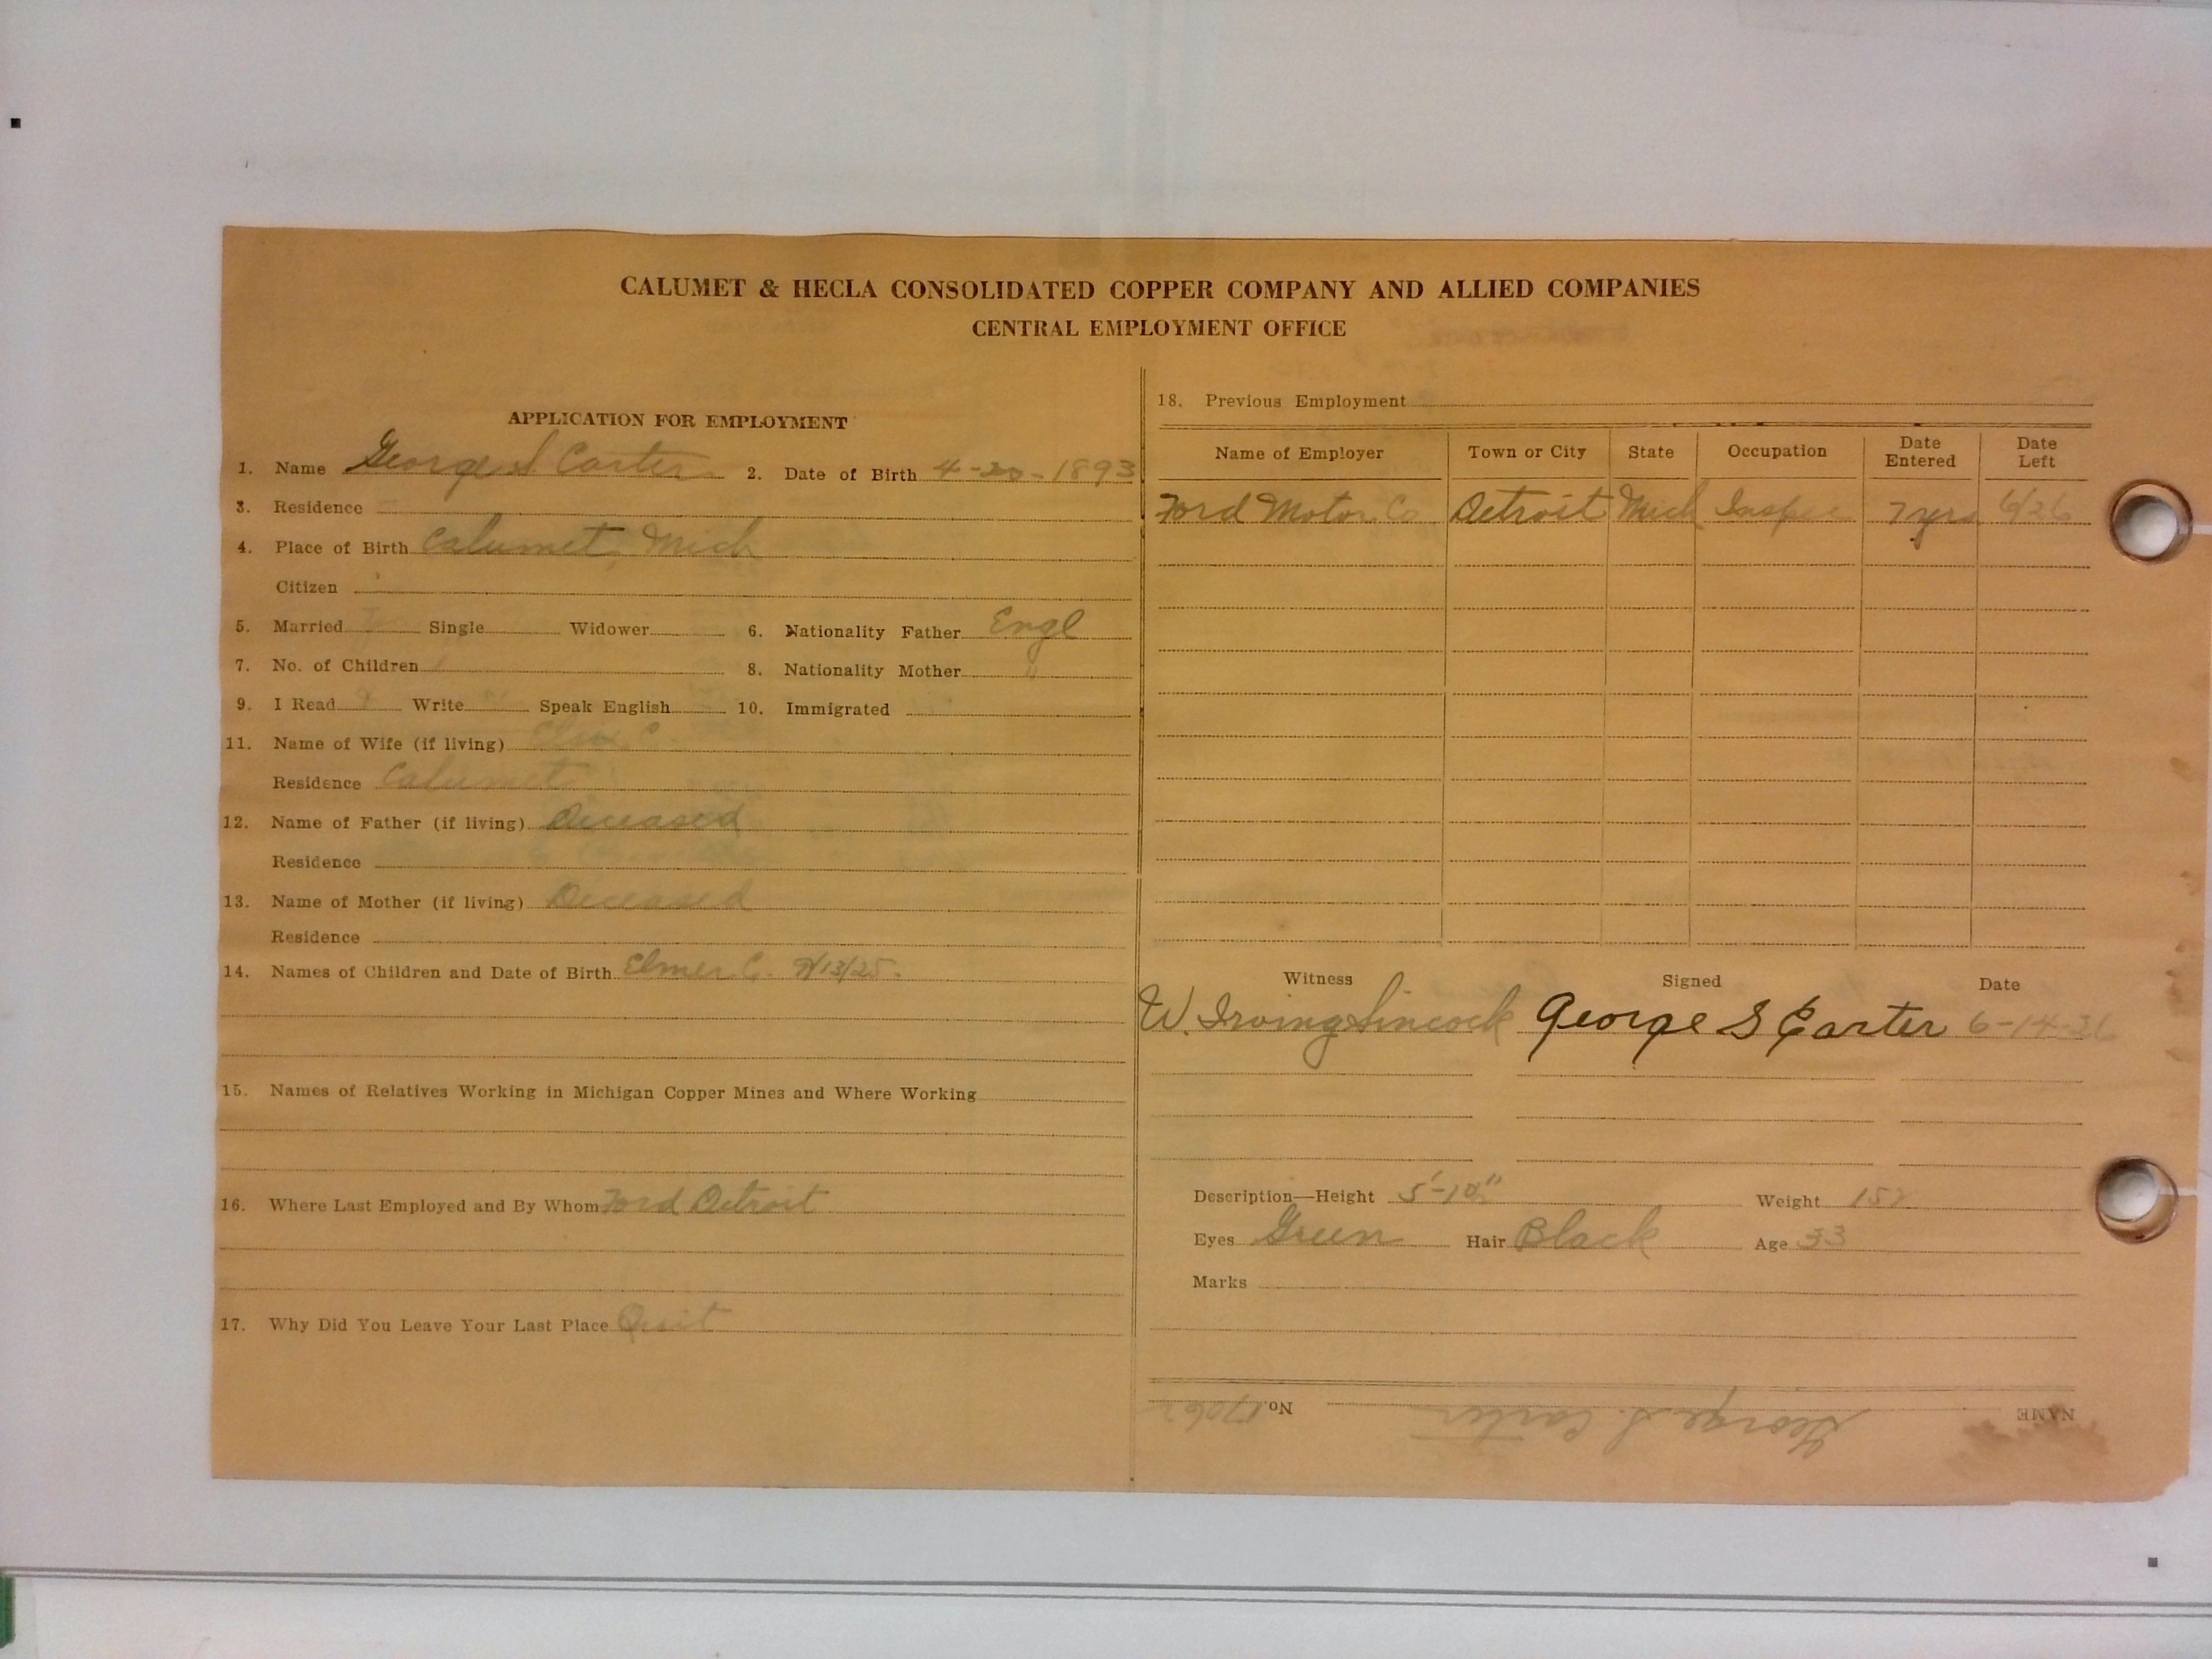 CALUMET & HECLA CONSOLIDATED COPPER COMPANY AND ALLIED COMPANIES
CENTRAL EMPLOYMENT OFFICE
APPLICATION FOR EMPLOYMENT
1. Name George S Carter 2. Date of Birth 4-20-1893
3. Residence
4. Place of Birth Calumet, Mich
Citizen
5. Married Single Widower 6. Nationality Father Engl
7. No. of Children 1 8. Nationality Mother "
9. I Read Write Speak English 10. Immigrated
11. Name of Wife (if living) C.
Residence Calumet
12. Name of Father (if living) Deceased
Residence
13. Name of Mother (if living) Deceased
Residence
14. Names of Children and Date of Birth Elmer C. 7/13/25.
15. Names of Relatives Working in Michigan Copper Mines and Where Working
16. Where Last Employed and By Whom Ford Detroit
17. Why Did You Leave Your Last Place Quit
18. Previous Employment
Name of Employer Town or City State Occupation Date Entered Date Left
Ford Motor Co Detroit Mich Inspec 7 yrs 6/26
Witness Signed Date
W. Irving Sincock George S Carter 6-14-26
Description—Height 5'-10" Weight 152
Eyes Green Hair Black Age 33
Marks
NAME George S. Carter No. 17062